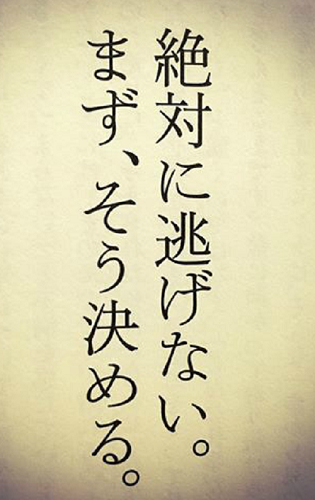 絶対に逃げない。
まず、そう決める。